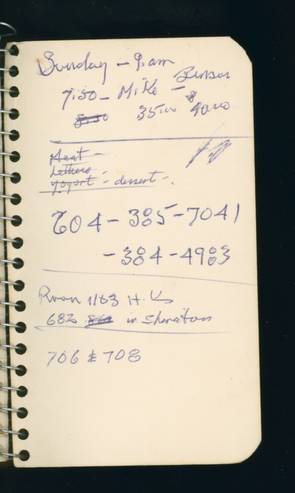 Sunday - 9 am
7:30 - Mike -
35.00 40.00
Meat
Lettuce
Yogurt - dessert -
604-385-7041
-384-4983
Room 1163 H.K
682 in Sheraton
706 & 708